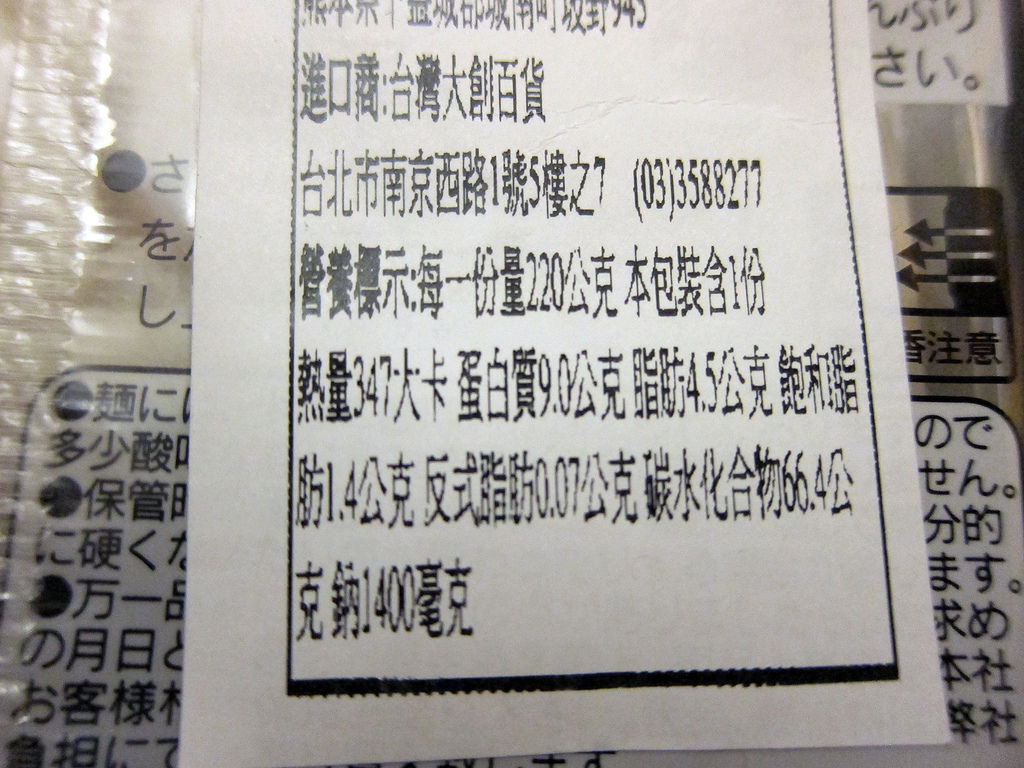 熊本県下益城郡城南町坂野945
進口商:台灣大創百貨
台北市南京西路1號5樓之7 (03)3588277
營養標示:每一份量220公克 本包裝含1份
熱量347大卡 蛋白質9.0公克 脂肪4.5公克 飽和脂
肪1.4公克 反式脂肪0.07公克 碳水化合物66.4公
克 鈉1400毫克
んぷり
さい。
●さ
を
し
注意
●麺に
多少酸
●保管
に硬く
●万一品
の月日と
お客様
負担にて
ので
せん。
分的
ます。
求め
本社
弊社